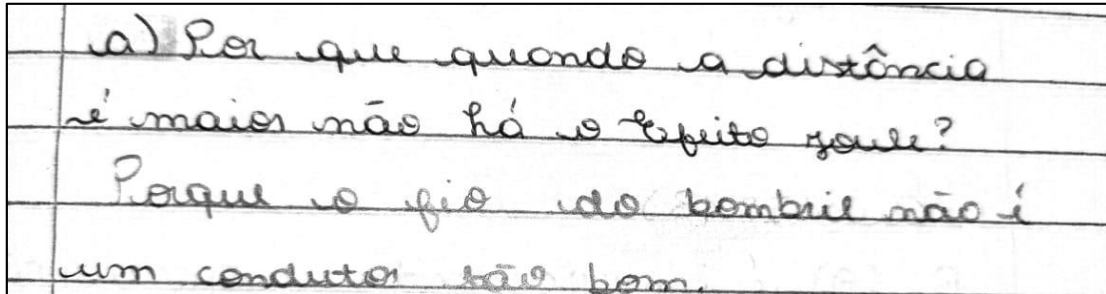 a) Por que quando a distância
é maior não há o Efeito Joule?
Porque o fio do bombril não é
um condutor tão bom.